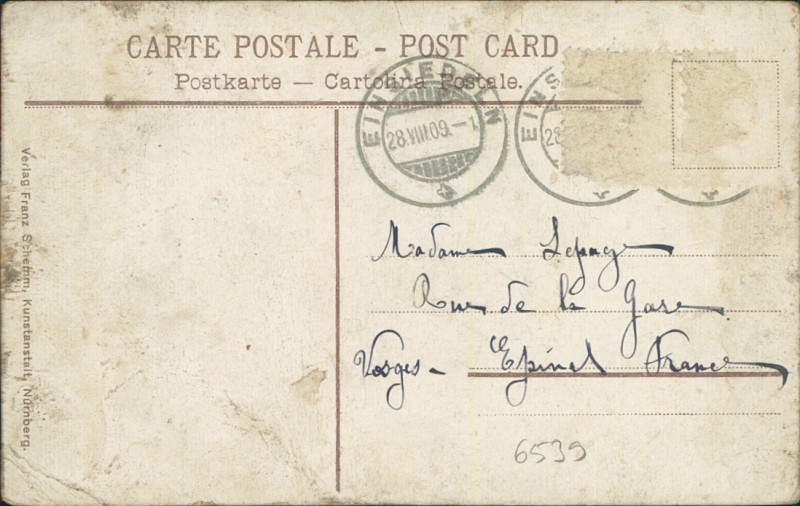 CARTE POSTALE - POST CARD
Postkarte — Cartolina Postale.
EINSIEDELN
28.VIII.09.–1
EINS
28
Madame Lepage
Rue de la Gare
Vosges - Epinal France
6539
Verlag Franz Schemm, Kunstanstalt, Nürnberg.